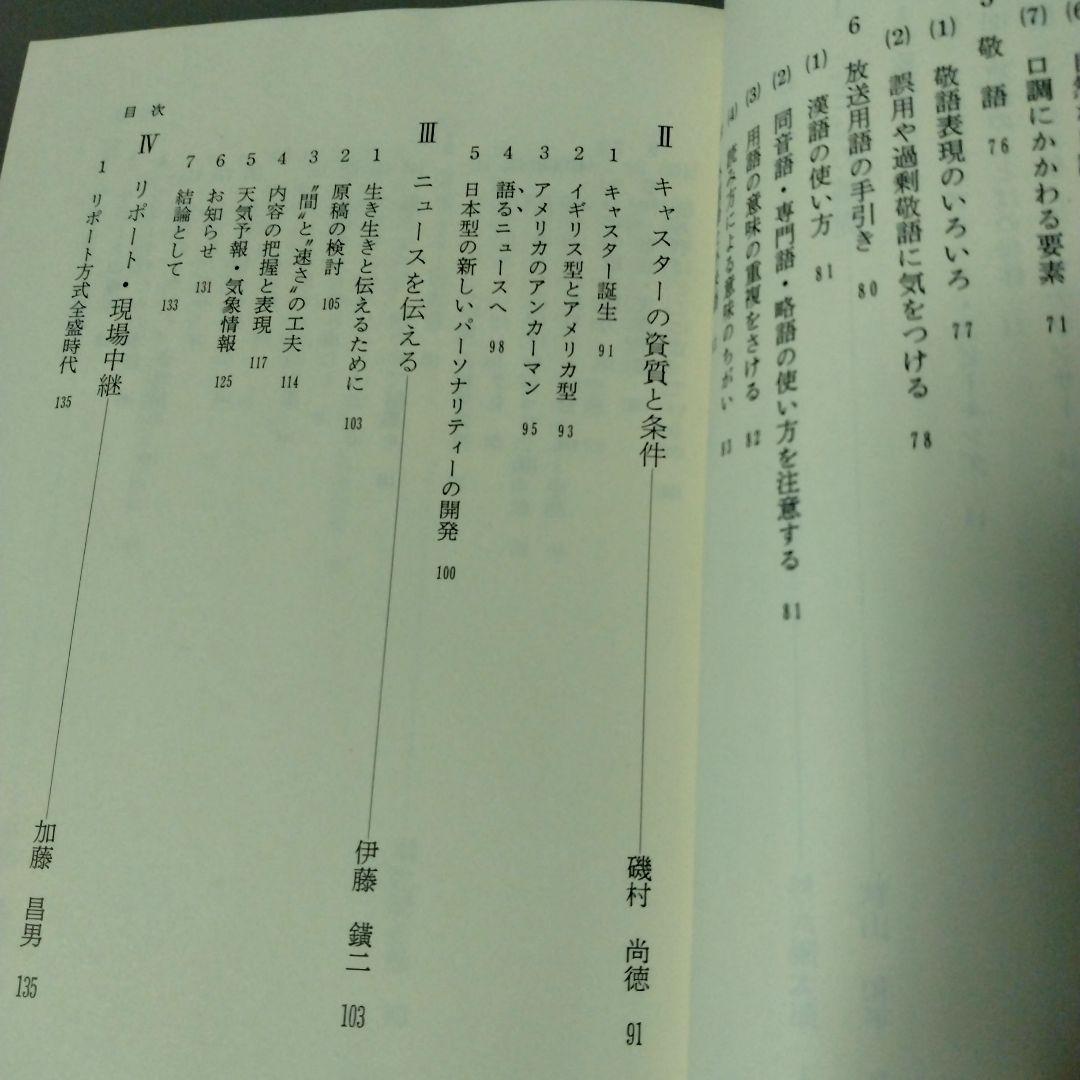 (7) 口調にかかわる要素 71
敬語 76
(1) 敬語表現のいろいろ 77
(2) 誤用や過剰敬語に気をつける 78
6 放送用語の手引き 80
(1) 漢語の使い方 81
(2) 同音語・専門語・略語の使い方を注意する 81
(3) 用語の意味の重複をさける 82
(4) 読み方による意味のちがい 83
Ⅱ キャスターの資質と条件 磯村 尚徳 91
1 キャスター誕生 91
2 イギリス型とアメリカ型 93
3 アメリカのアンカーマン 95
4 語るニュースへ 98
5 日本型の新しいパーソナリティーの開発 100
Ⅲ ニュースを伝える 伊藤 鐄二 103
1 生き生きと伝えるために 103
2 原稿の検討 105
3 〝間〟と〝速さ〟の工夫 114
4 内容の把握と表現 117
5 天気予報・気象情報 125
6 お知らせ 131
7 結論として 133
Ⅳ リポート・現場中継 加藤 昌男 135
1 リポート方式全盛時代 135
目次